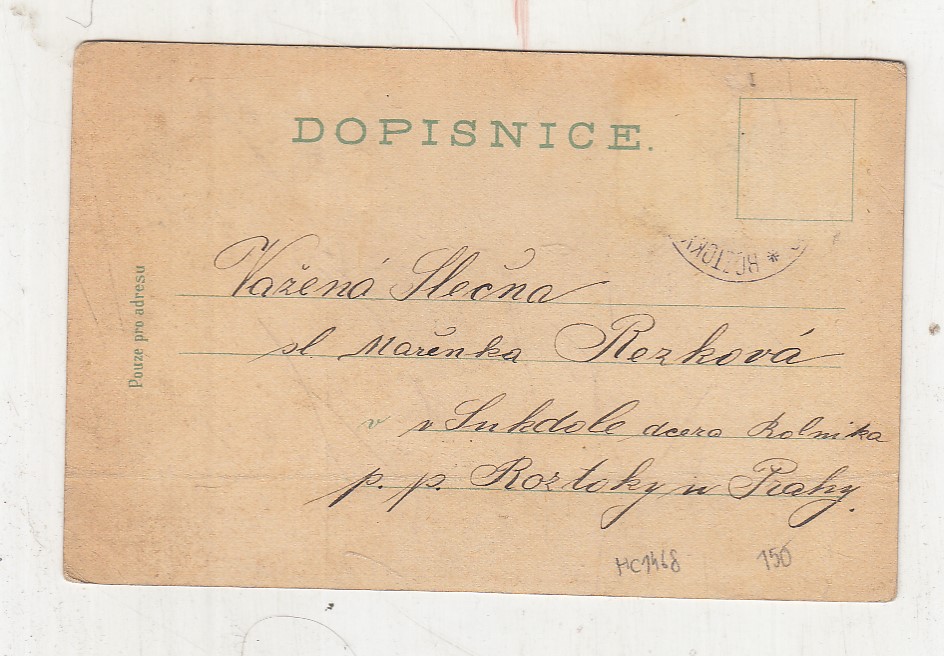 DOPISNICE.
ROZTOKY *
Pouze pro adresu
Vážená Slečna
sl. Mařenka Rezková
v v Sukdole dcera Rolnika
p. p. Roztoky u Prahy.
HC1468 150